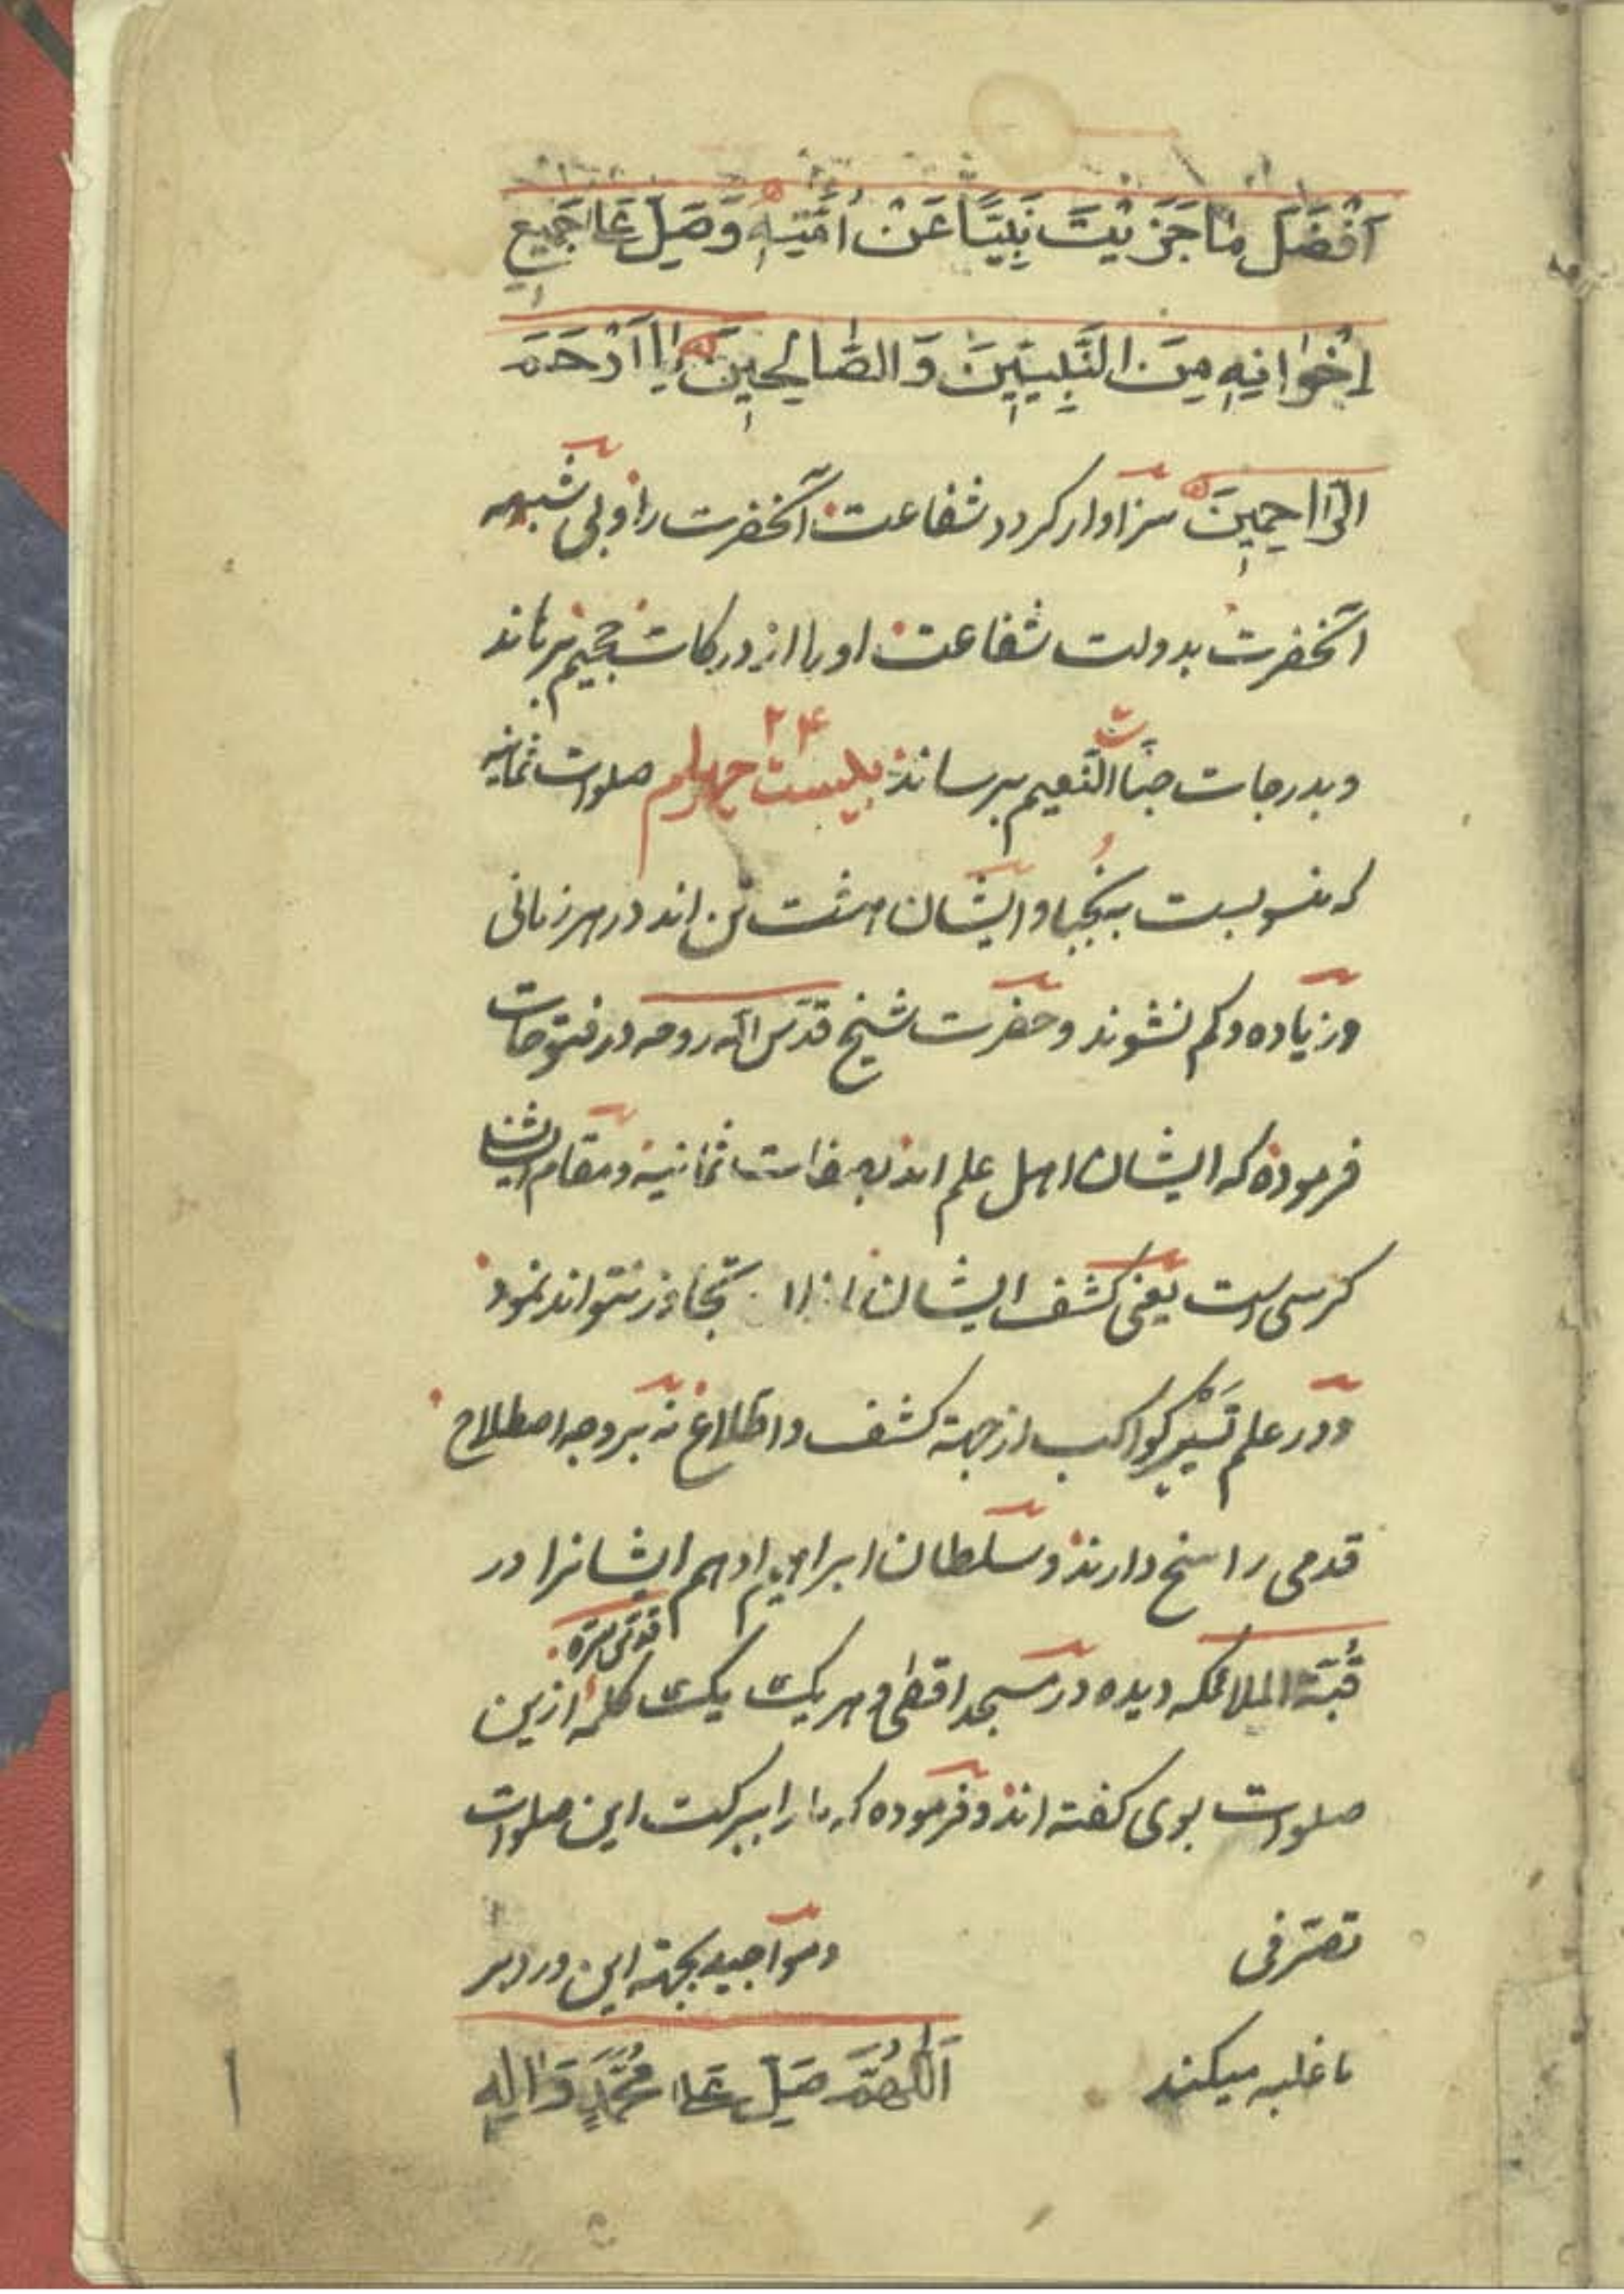 اَفْضَلَ مَا جَزَيْتَ نَبِيًّا عَنْ اُمَّتِهِ وَصَلِّ عَلٰا جَمِيعِ
اِخْوَانِهِ مِنَ النَّبِيِّينَ وَ الصَّالِحِينَ يٰا اَرْحَمَ
الرّٰاحِمِينَ سزاوار کردد شفاعت آنحضرت را و بی شبهه
آنحضرت بدولت شفاعت او را از درکات جحیم برهاند
و بدرجات جنّات النّعیم برساند بیست چهارم ۲۴ صلوات ثمانیه
که منسوبست به نجبا و ایشان هشت تن اند در هر زمانی
و زیاده و کم نشوند و حضرت شیخ قدّس الله روحه در فتوحات
فرموده که ایشان اهل علم اند بصفات ثمانیه و مقام ایشان
کرسی است یعنی کشف ایشان از تجاوز نتواند نمود
و در علم تَسْیِیر کواکب از جهة کشف و اطلاع نه بر وجه اصطلاح
قدمی راسخ دارند و سلطان ابراهیم ادهم ایشانرا در
قدّس سرّه
قُبّة الملائکه دیده در مسجد اقصٰی و هر یک یک کلمه ازین
صلوات بوی کفته اند و فرموده که ما را ببرکت این صلوات
تصرّفی و مواجید بجهة این ورد بر
ما غلبه میکند اَللّٰهُمَّ صَلِّ عَلٰا مُحَمَّدٍ وَ اٰلِهِ